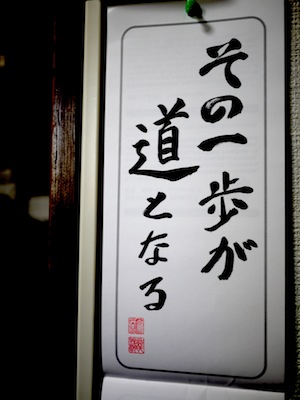 その一歩が
道となる